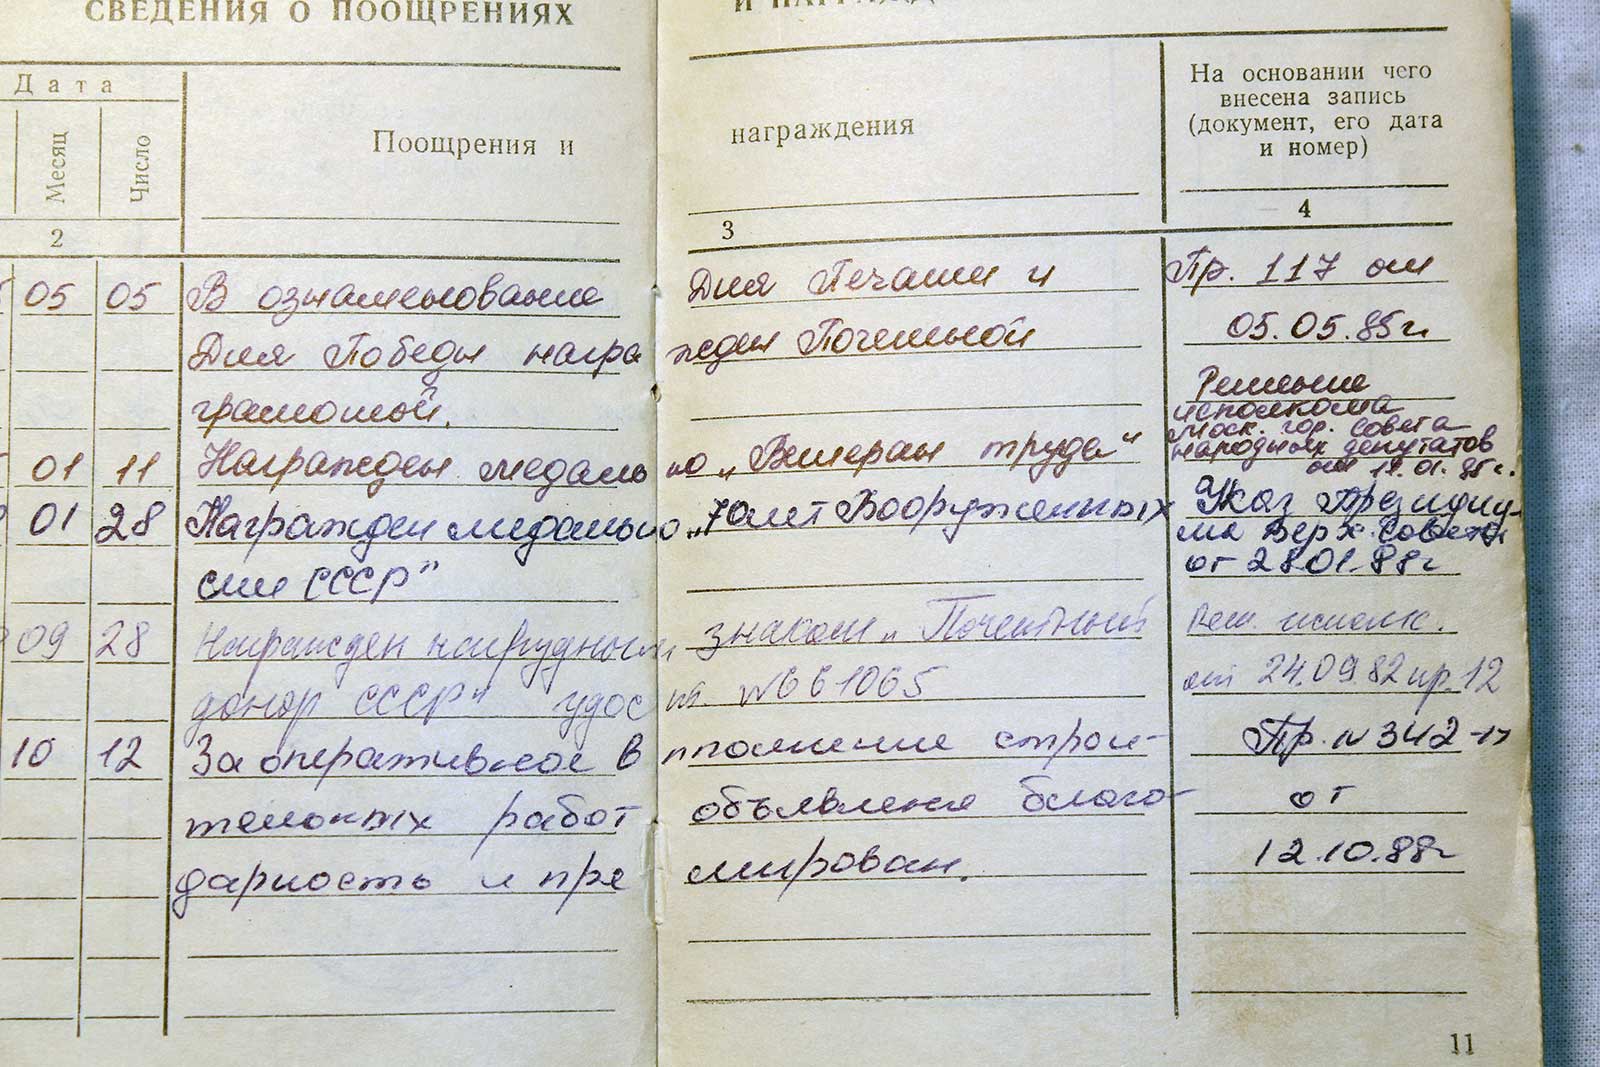 СВЕДЕНИЯ О ПООЩРЕНИЯХ
И НАГРАЖД
Дата
Месяц
Число
Поощрения и
награждения
На основании чего
внесена запись
(документ, его дата
и номер)
2
3
4
05 05 В ознаменование Дня Печати и Пр. 117 от
Дня Победы награ жден Почетной 05.05.85г.
грамотой. Решение
исполкома
Моск. гор. Совета
народных депутатов
01 11 Награжден медаль ю „Ветеран труда“ от 11.01.85г.
01 28 Награжден медалью „70 лет Вооруженных Указ Президиу-
ма Верх. Совета
сил СССР“ от 28.01.88г
09 28 Награжден нагрудным знаком „Почетный Реш. исполк.
донор СССР“ удос тв. №661065 от 24.09.82 пр.12
10 12 За оперативное в ыполнение строи- Пр. №342-п
тельных работ объявлена благо- от
дарность и пре мирован. 12.10.88г
11